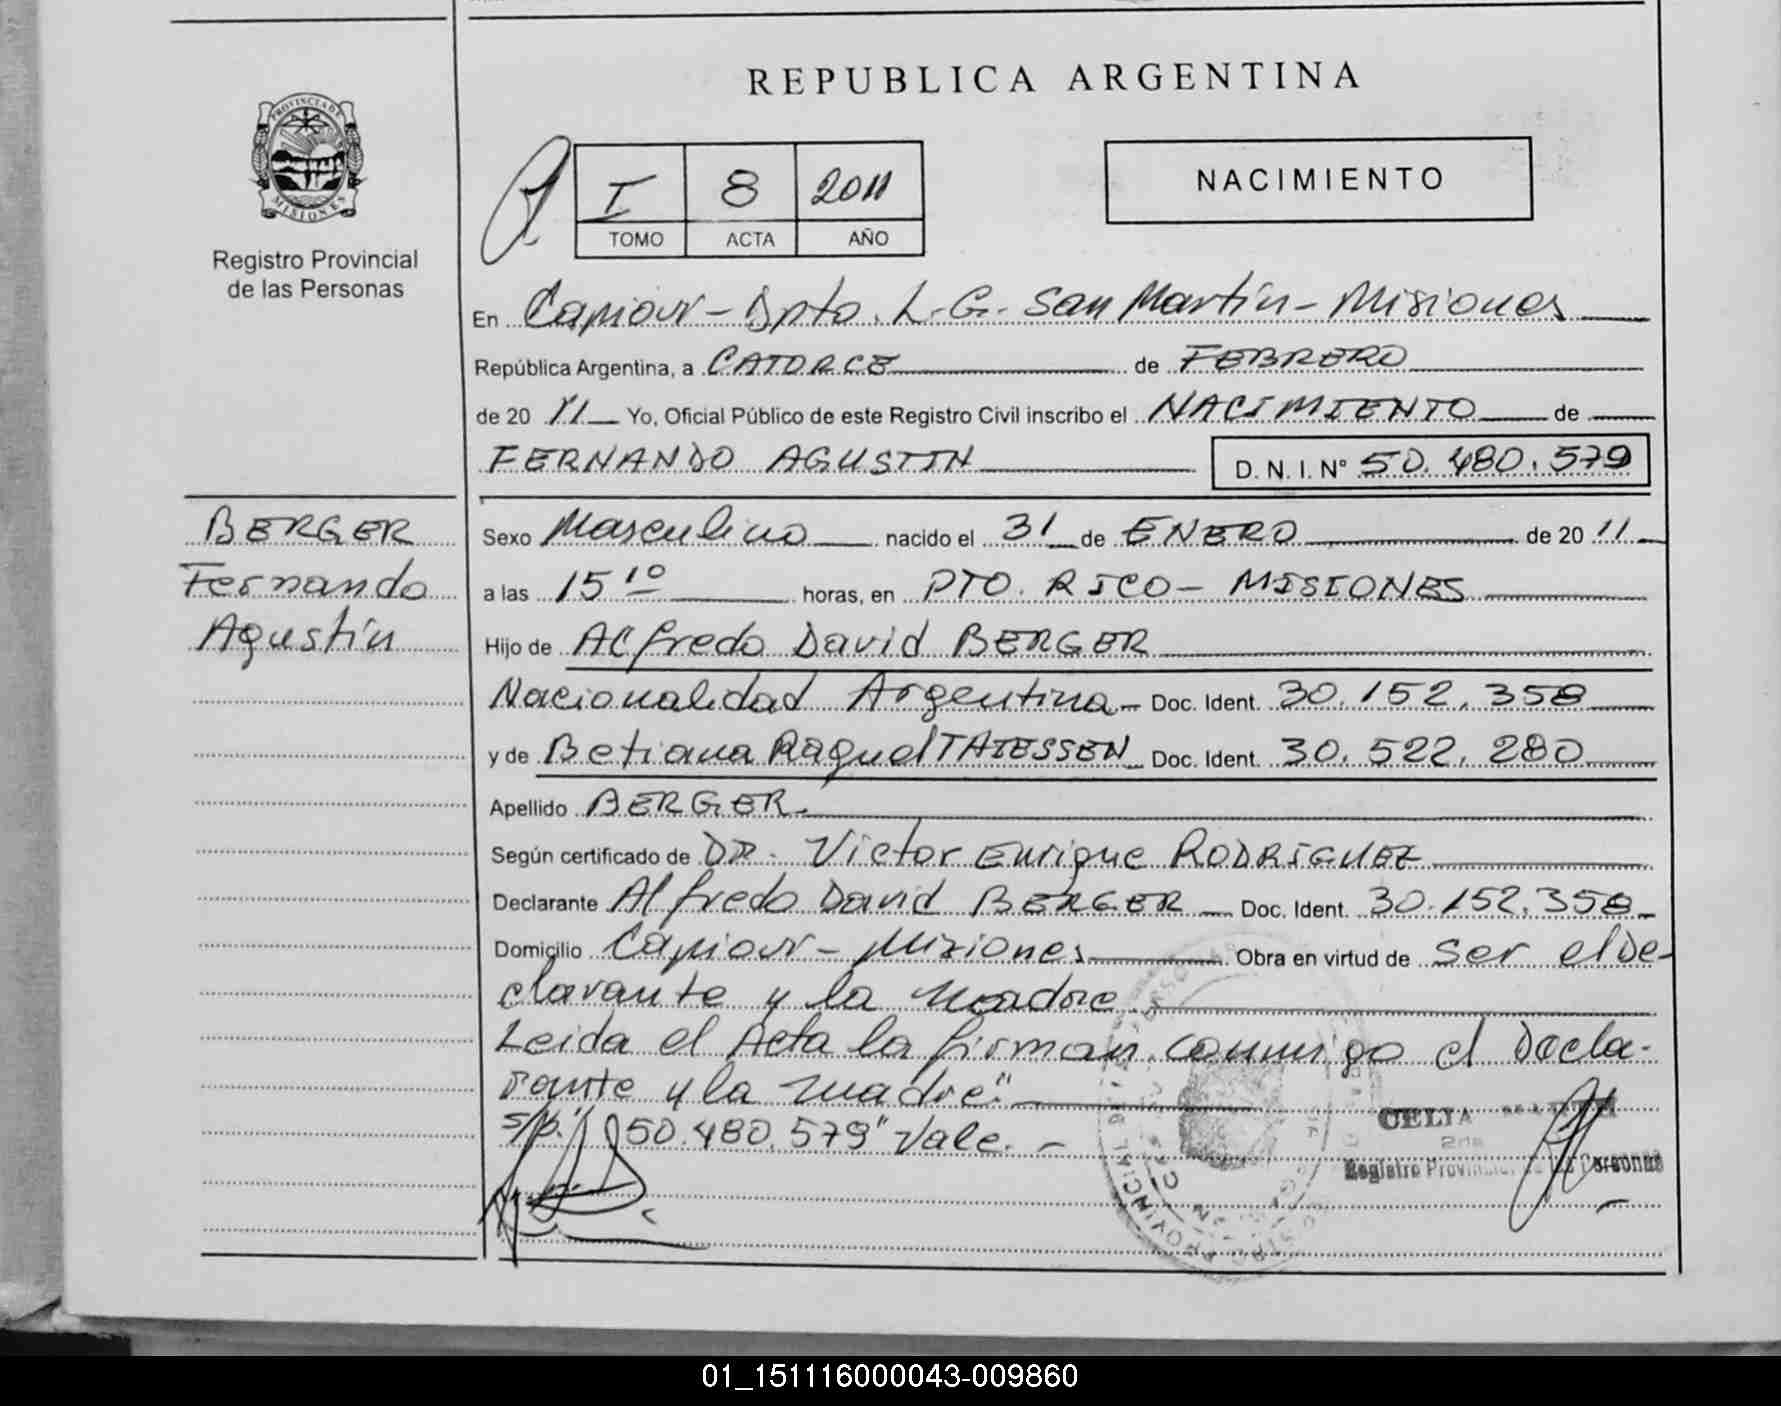 REPUBLICA ARGENTINA
PROVINCIA DE
MISIONES
Registro Provincial
de las Personas
I 8 2011
TOMO ACTA AÑO
NACIMIENTO
En Capioví - Dpto. L. G. San Martín - Misiones
República Argentina, a CATORCE de FEBRERO
de 20 11 Yo, Oficial Público de este Registro Civil inscribo el NACIMIENTO de
FERNANDO AGUSTIN D. N. I. Nº 50.480.579
BERGER
Fernando
Agustín
Sexo Masculino nacido el 31 de ENERO de 20 11
a las 15 10 horas, en PTO. RICO - MISIONES
Hijo de Alfredo David BERGER
Nacionalidad Argentina - Doc. Ident. 30.152.358
y de Betiana Raquel THIESSEN Doc. Ident. 30.522.280
Apellido BERGER.
Según certificado de DR. Victor Enrique RODRIGUEZ
Declarante Alfredo David BERGER Doc. Ident. 30.152.358
Domicilio Capioví - Misiones Obra en virtud de ser el De-
clarante y la madre
Leida el Acta la firman conmigo el Decla-
rante y la madre"
S/b. "50.480.579" Vale. -
CELIA
Registro Provincial de las Personas
01_151116000043-009860